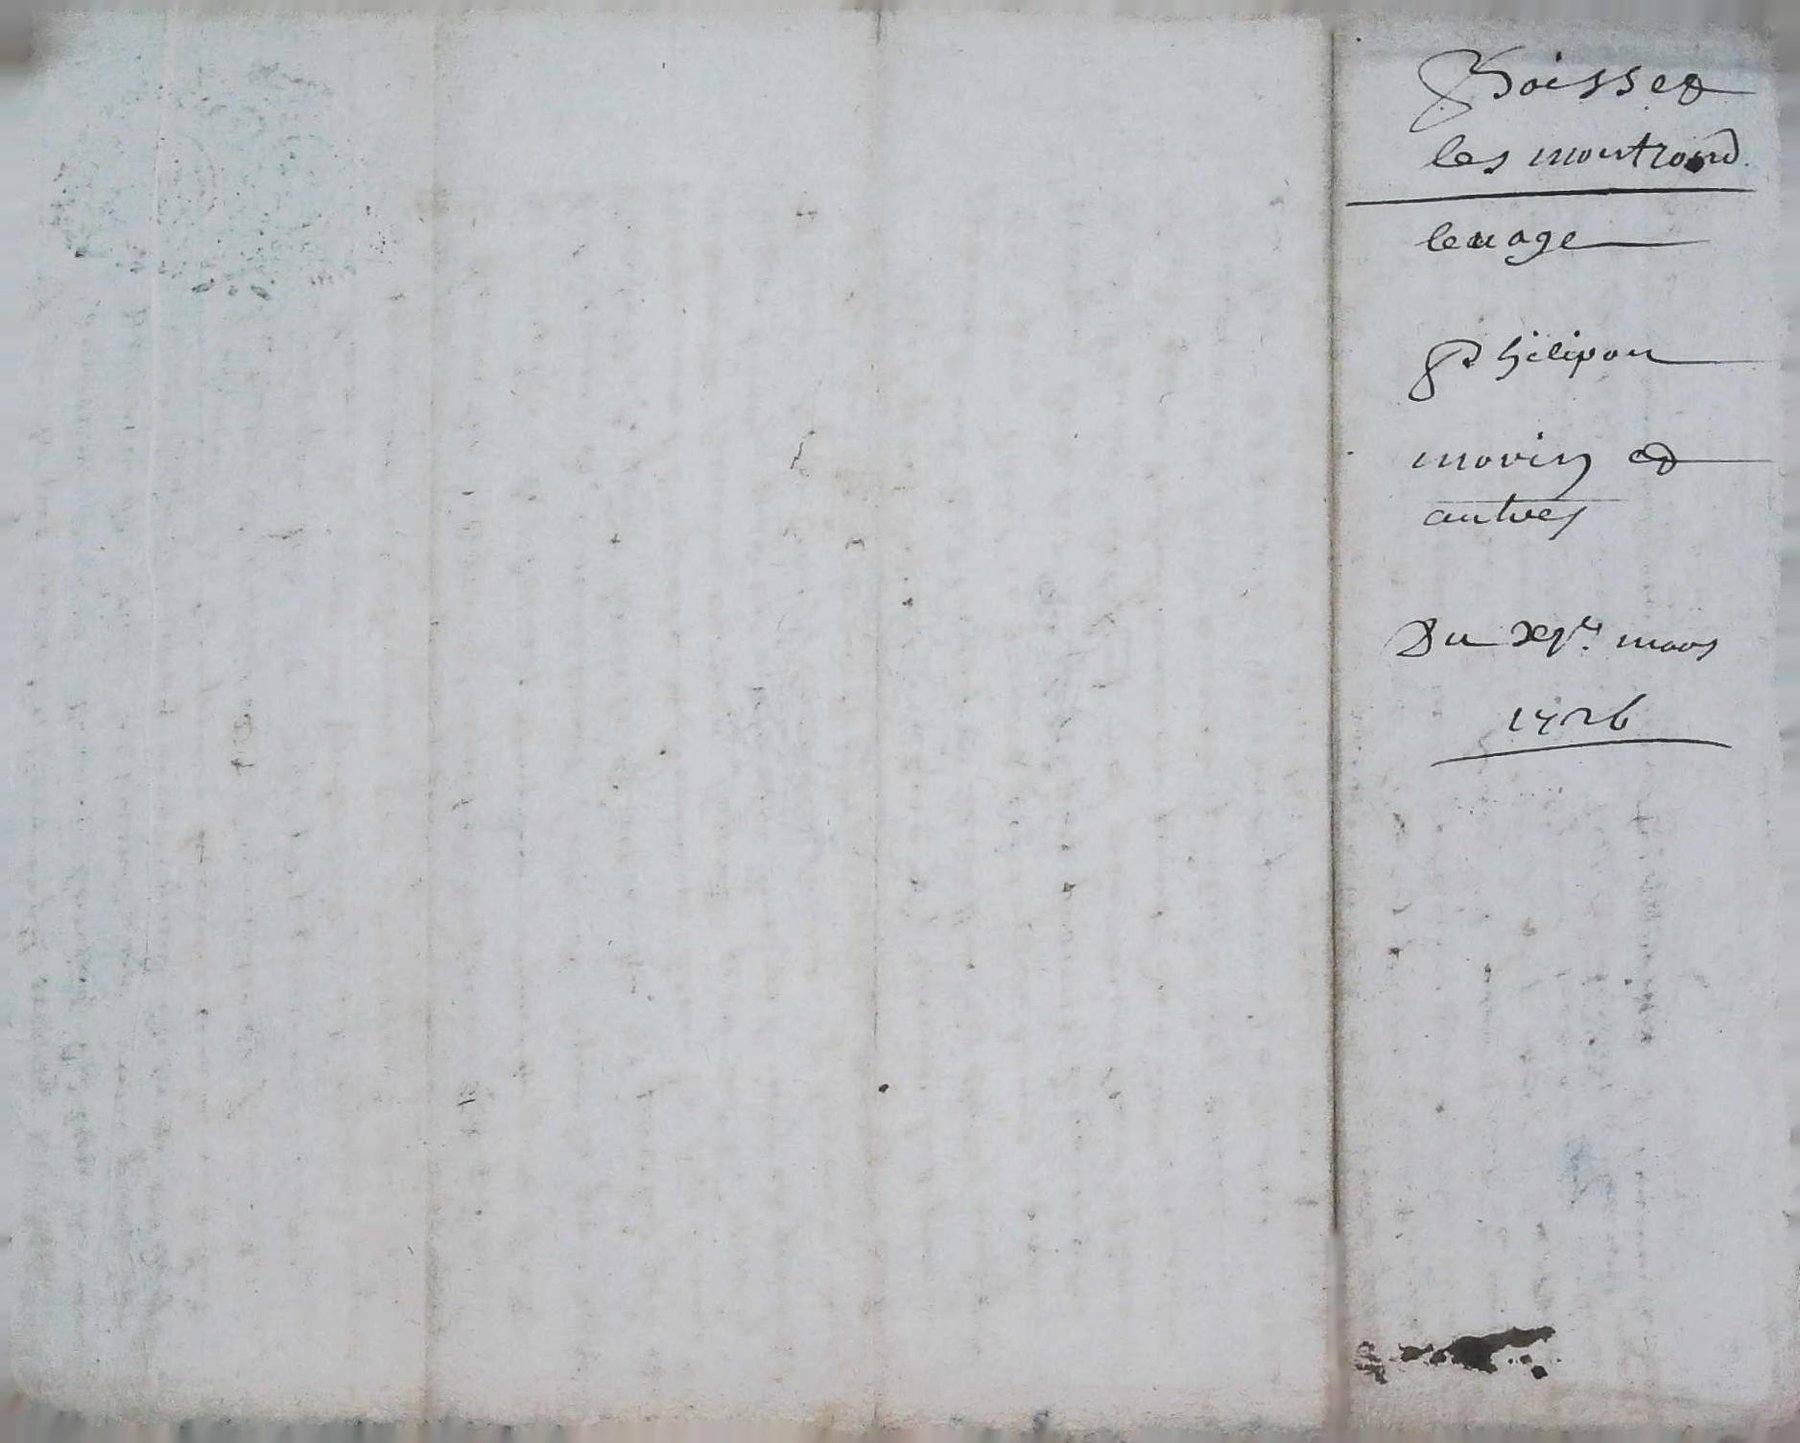 Boisset
les montrond.
leuage
Philipon
morin et
autres
Du mars
1726